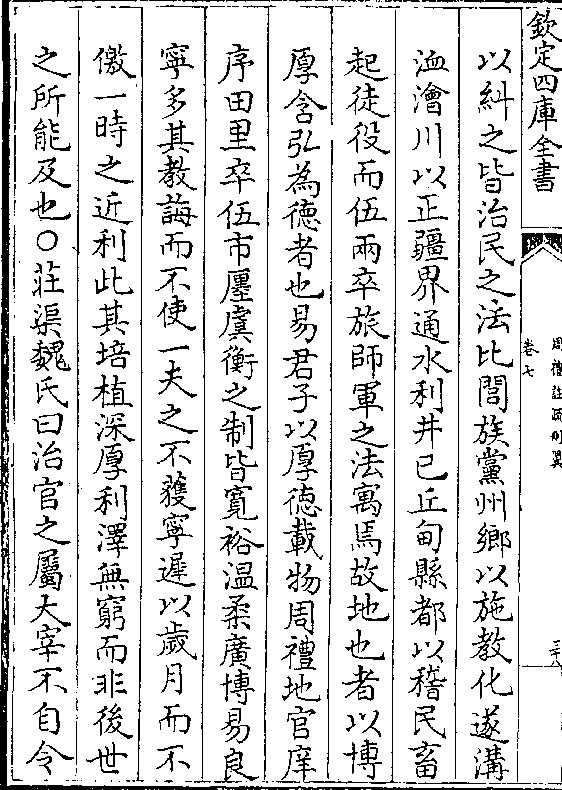 欽定四庫全書
周禮註疏刪翼
卷七
三十八
以糾之皆治民之法比閭族黨州鄉以施教化遂溝
洫澮川以正疆界通水利井已丘甸縣都以稽民畜
起徒役而伍兩卒旅師軍之法寓焉故地也者以博
厚含弘為德者也易君子以厚德載物周禮地官庠
序田里卒伍市廛虞衡之制皆寛裕温柔廣博易良
寧多其教誨而不使一夫之不獲寧遲以歲月而不
儌一時之近利此其培植深厚利澤無窮而非後世
之所能及也〇莊渠魏氏曰治官之屬大宰不自令